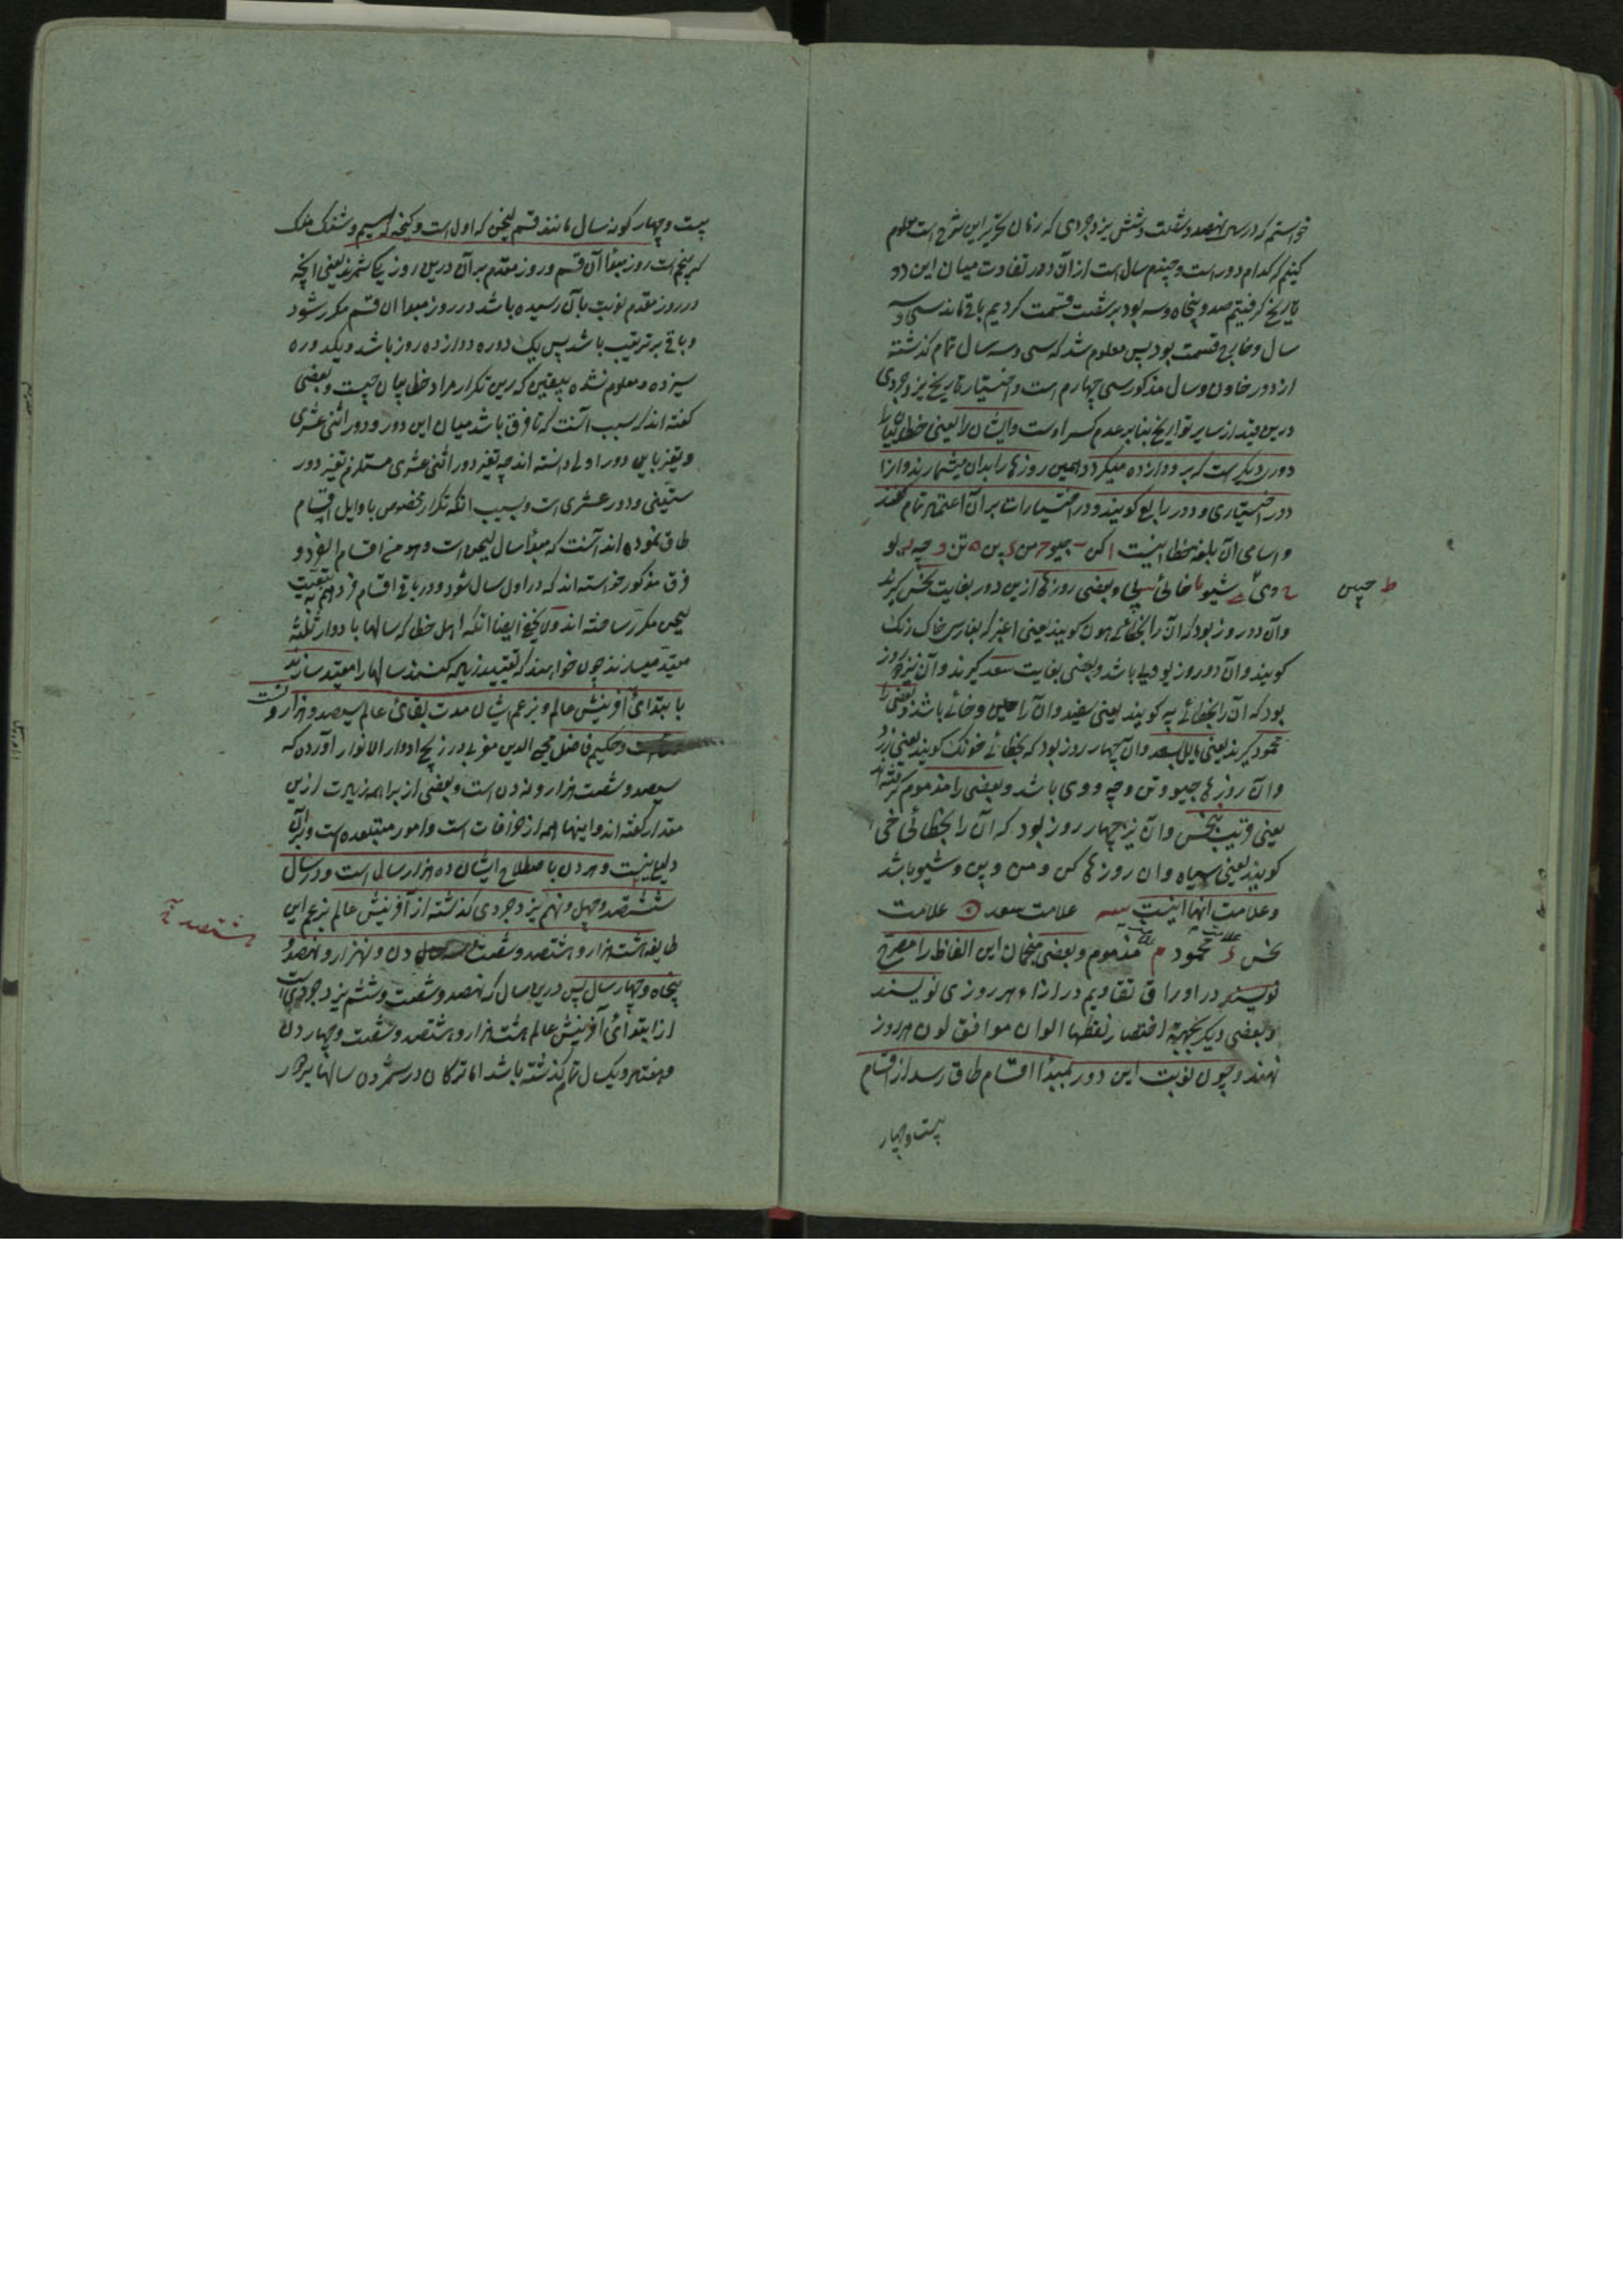 خواستم که در سال نهصد و شصت و شش یزدجردی که زمان تحریر این شرح است معلوم
کنیم که کدام دور است و چندم سال است از آن دور تفاوت میان این دو
تاریخ گرفتیم صد و پنجاه و سه بود بر شصت قسمت کردیم باقی ماند سی و سه
سال و خارج قسمت بود پس معلوم شد که سی و سه سال تمام گذشته
از دور خاون و سال مذکور سی چهارم است و اختیار تاریخ یزدجردی
درین قید از سایر تواریخ بنابر عدم کسر اوست و ایشان را یعنی خطائیان را
دوری دیگر است که بر دوازده میگردد و همین روزها را بدان میشمارند و آنرا
دور اختیاری و دور رابع گویند و در اختیارات بر آن اعتماد تمام کنند
و اسامی آن بلغة خطا اینست ا کن ب چیو ج من د پن ه تن و چه ز لو
ط چین
ح وی ی شیو یا خائی یب پی و بعضی روزها ازین دور بغایت نحس گیرند
و آن دو روز بود که آن را بخطائی هون گویند یعنی اغبر که بفارسی خاک رنگ
گویند و آن دو روز بو و پی باشد و بعضی بغایت سعد گیرند و آن نیز دو روز
بود که آن را بخطائی په گویند یعنی سفید و آن را چین و خائی باشد و بعضی را
محمود گیرند یعنی مایل بسعد و آن چهار روز بود که بخطائی خونک گویند یعنی زرد
و آن روزها چیو و تن و چه و وی باشد و بعضی را مذموم گرفته اند
یعنی قریب بنحس و آن نیز چهار روز بود که آن را بخطائی خی
گویند یعنی سیاه و آن روزها کن و من و پن و شیو باشد
و علامت آنها اینست سه علامت سعد علامت
نحس د علامت محمود م علامت مذموم و بعضی منجمان این الفاظ را مصرح
نویسند در اوراق تقاویم در ازاء هر روزی نویسند
و بعضی دیگر بجهة اختصار نقطها الوان موافق لون هر روز
نهند و چون نوبت این دور بمبدأ اقسام طاق رسد از اقسام
بیست و چهار
بیست و چهار گونه سال مانند قسم لیچن که اول است و کنجه که سیم و شنک منک
که پنجم است روز مبدأ آن قسم و روز مقدم بر آن درین روز یکی شمرند یعنی آنچه
در روز مقدم نوبت بآن رسیده باشد در روز مبدا آن قسم مکرر شود
و باقی بر ترتیب باشد پس یک دوره دوازده روز باشد و یکدوره
سیزده و معلوم نشده بیقین که ازین تکرار مراد خطائیان چیست و بعضی
گفته اند که سبب آنست که تا فرق باشد میان این دور و دور اثنی عشری
و تغیر باین دور اولی دانسته اند چه تغیر دور اثنی عشری مستلزم تغیر دور
ستینی و دور عشری است و سبب آنکه تکرار مخصوص باوایل اقسام
طاق نموده اند آنست که مبدأ سال لیچن است و هو من اقسام الفرد و
فرق مذکور خواسته اند که در اول سال شود و در باقی اقسام فرد هم به تبعیت
لیچن مکرر ساخته اند دون کنجه ایضا آنکه اهل خطا که سالها با دوار ثلثه
مقید میسازند چون خواهند که تقیید زیاده کنند سالها را مقید سازند
بابتدای آفرینش عالم و بزعم ایشان مدت بقای عالم سیصد و هزار ون است
و حکیم فاضل محی الدین مغربی در زیج ادوار الانوار آورده که
سیصد و شصت هزار ون ون است و بعضی از براهمه زیاده از این
مقدار گفته اند و اینها همه از خرافات است و امور مبتدعه است و بر آن
دلیلی نیست و هر ون باصطلاح ایشان ده هزار سال است و در سال
ششصد و چهل و نهم یزدجردی گذشته از آفرینش عالم بزعم این
هشتصد
طایفه هشت هزار و هشتصد و شصت و سه ون و نه هزار و نهصد و
پنجاه و چهار سال پس درین سال که نهصد و شصت و ششم یزدجردی است
از ابتدای آفرینش عالم هشت هزار و هشتصد و شصت و چهار ون
و هفتاد و یک سال تمام گذشته باشد اما ترکان در شمردن سالها بر هر